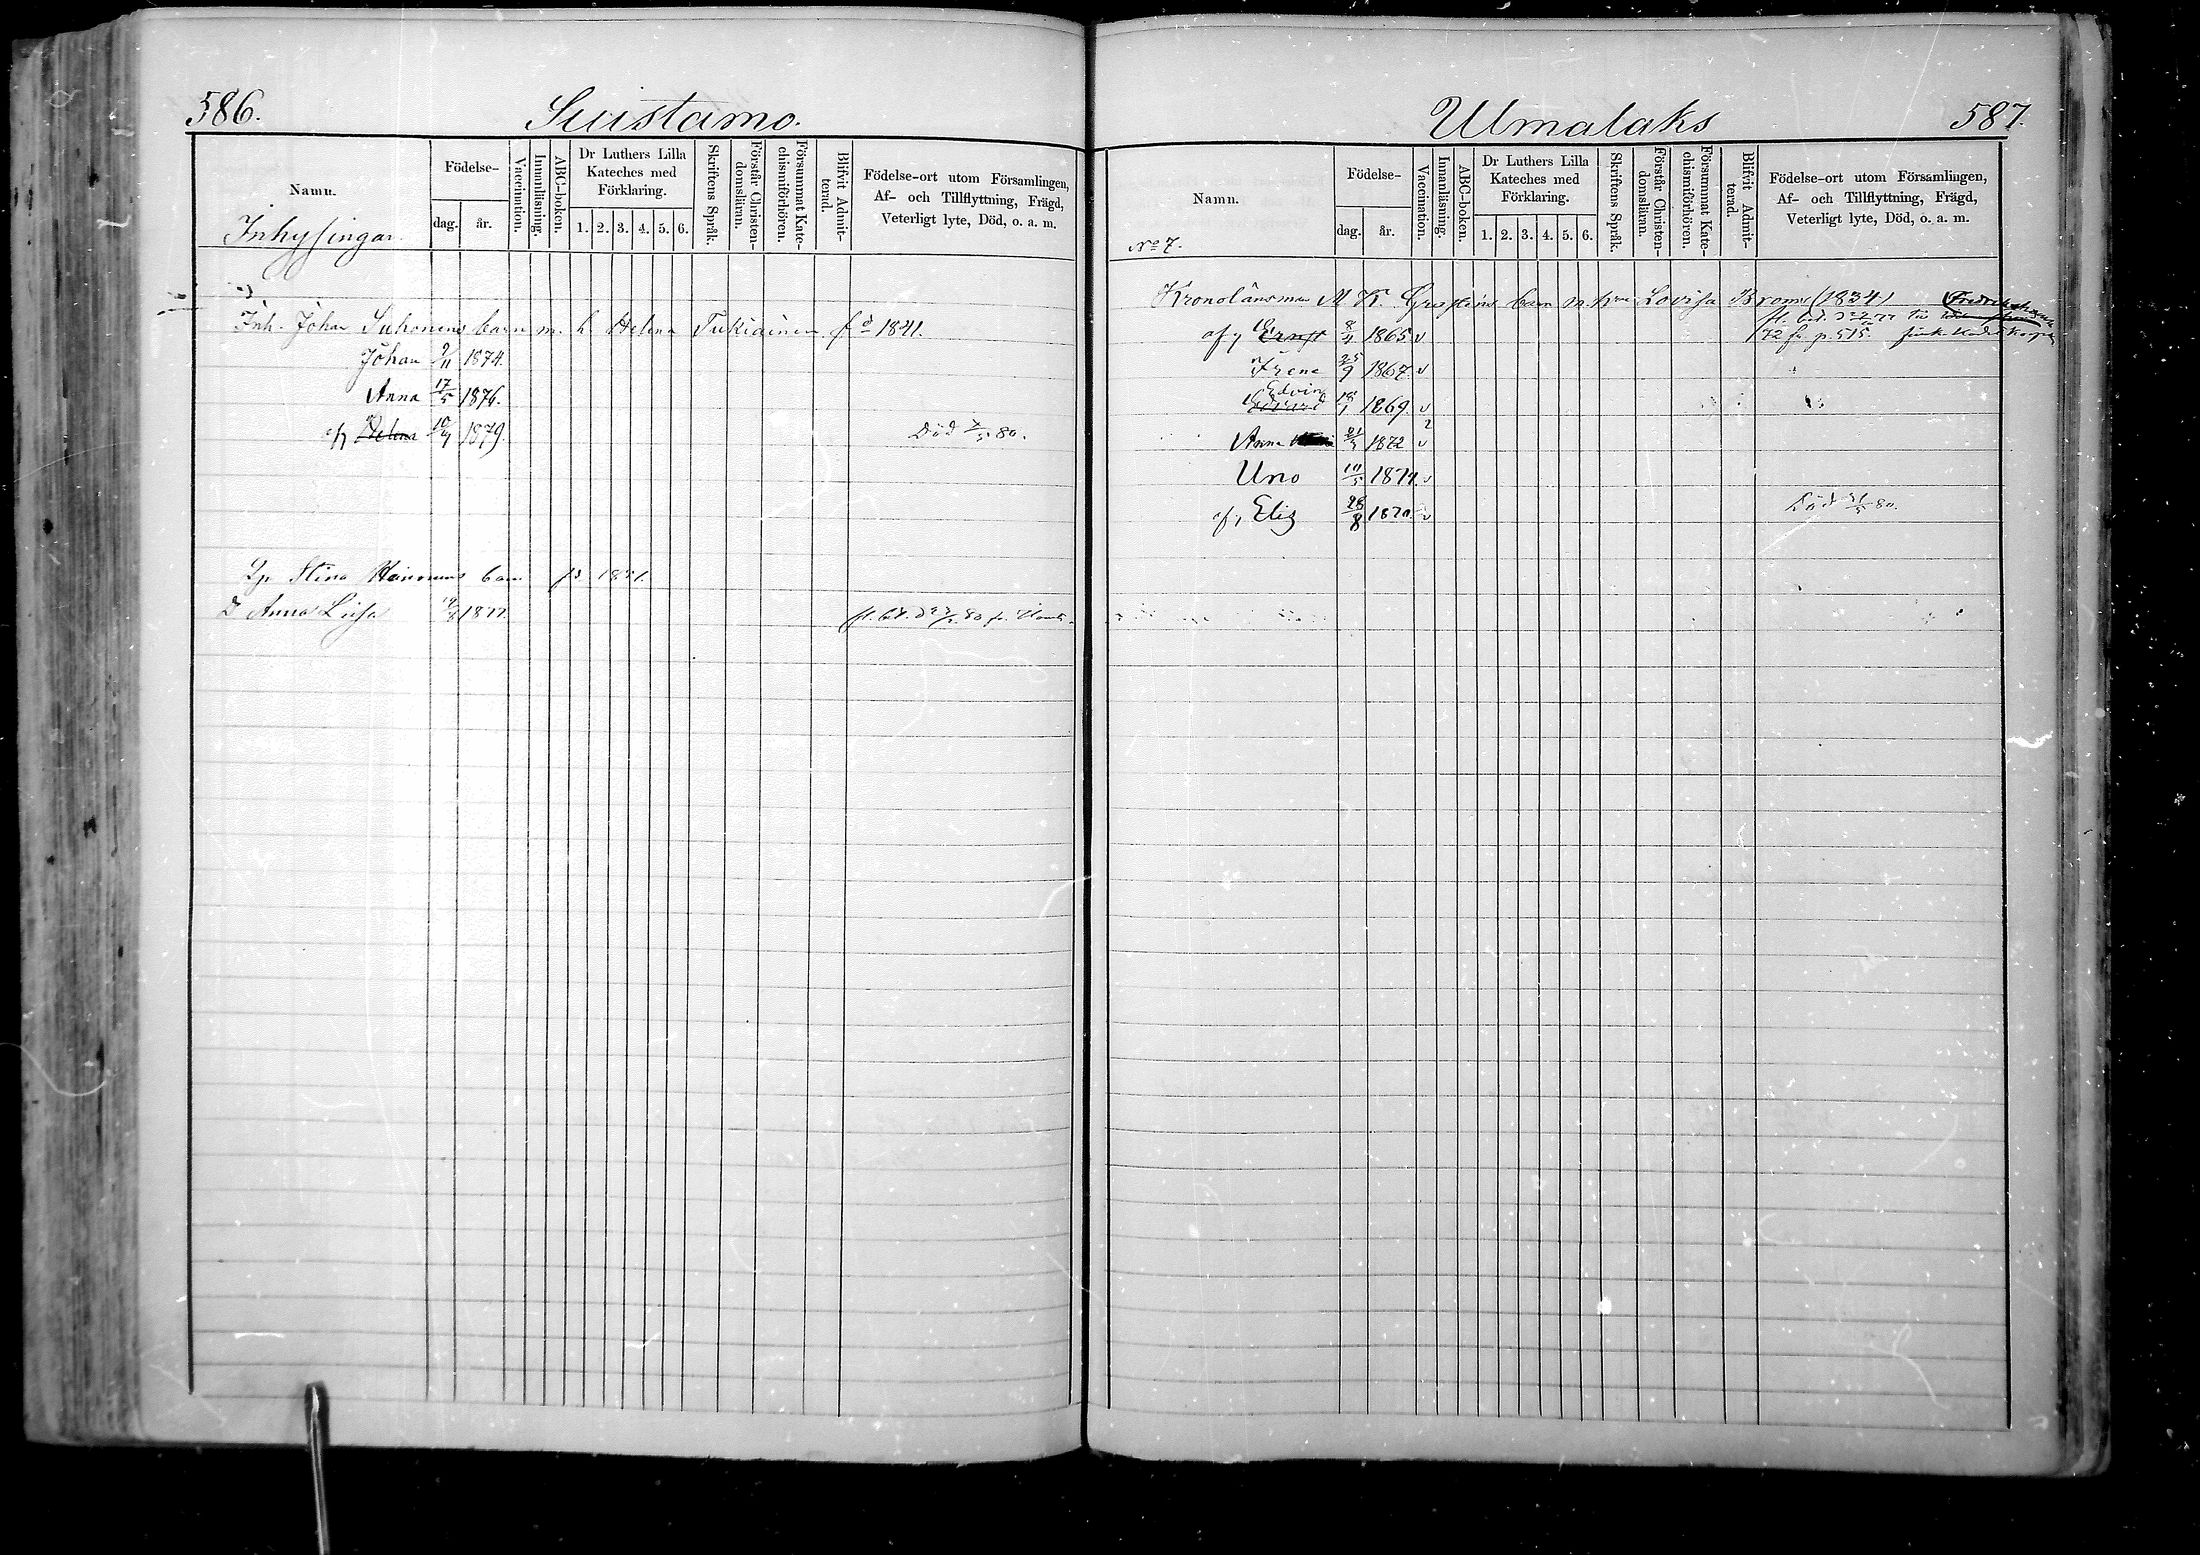 586.
Suistamo.
Namn.
Födelse-
dag.
år.
Vaccination.
Innanläsning.
ABC-boken.
Dr Luthers Lilla
Kateches med
Förklaring.
1. 2. 3. 4. 5. 6.
Skriftens Språk.
Förstår Christen-
domsläran.
Försummat Kate-
chismiförhören.
Blifvit Admit-
terad.
Födelse-ort utom Församlingen,
Af- och Tillflyttning, Frägd,
Veterligt lyte, Död, o. a. m.
Inhysingar.
Inh. Johan Suhonens barn m. h. Helena Tukiainen fd 1841.
Johan 9/11 1874.
Anna 17/5 1876.
Helena 1879. Död 80.
Stina barn
D Anna Lisa 1877. 80 fr.
Ulmalaks
587.
Namn.
Födelse-
dag.
år.
Vaccination.
Innanläsning.
ABC-boken.
Dr Luthers Lilla
Kateches med
Förklaring.
1. 2. 3. 4. 5. 6.
Skriftens Språk.
Förstår Christen-
domsläran.
Försummat Kate-
chismiförhören.
Blifvit Admit-
terad.
Födelse-ort utom Församlingen,
Af- och Tillflyttning, Frägd,
Veterligt lyte, Död, o. a. m.
No 7.
Kronolänsman M. K. barn m. Lovisa (1834)
Ernst 1865 v
72 fr p. 515.
Irene 25/9 1867 v
Edvin
Edvard 1869 v
Anna 1872 v
Uno 1874. v
Eliz 28/8 1870. v Död 80.